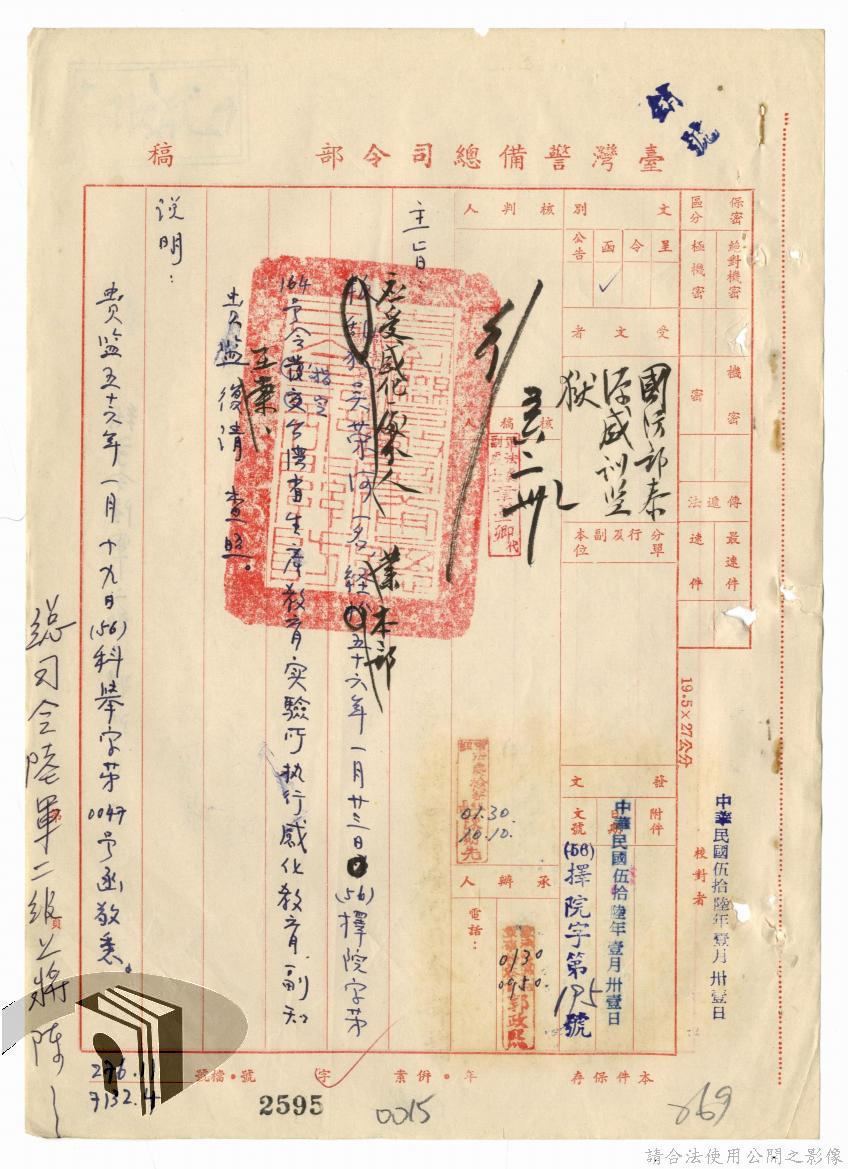 臺灣警備總司令部 稿
保密區分
絕對機密
極機密
機密
密
傳遞法
最速件
速件
文別
呈
令
函
公告
受文者
國防部泰源感訓監獄
分行及副本單位
19.5×27公分
發文
附件
日期
中華民國伍拾陸年壹月卅壹日
文號
(56)擇院字第 號
校對者
中華民國伍拾陸年壹月卅壹日
核判人
核稿人
承辦人
電話：
0130
0950
01.30
10.10.
主旨：
應受感化處分人
吳榮河一名，經本部五十六年一月廿三日(56)擇院字第
164號令指定台灣省生產教育實驗所執行感化教育，副知
貴監復請 查照。
說明：
貴監五十六年一月十九日(56)科舉字第0047號函敬悉。
總司令陸軍二級上將陳
本件保存 年·併案 字 號·檔號
276.11
7132.4
2595
0015
869
請合法使用公開之影像